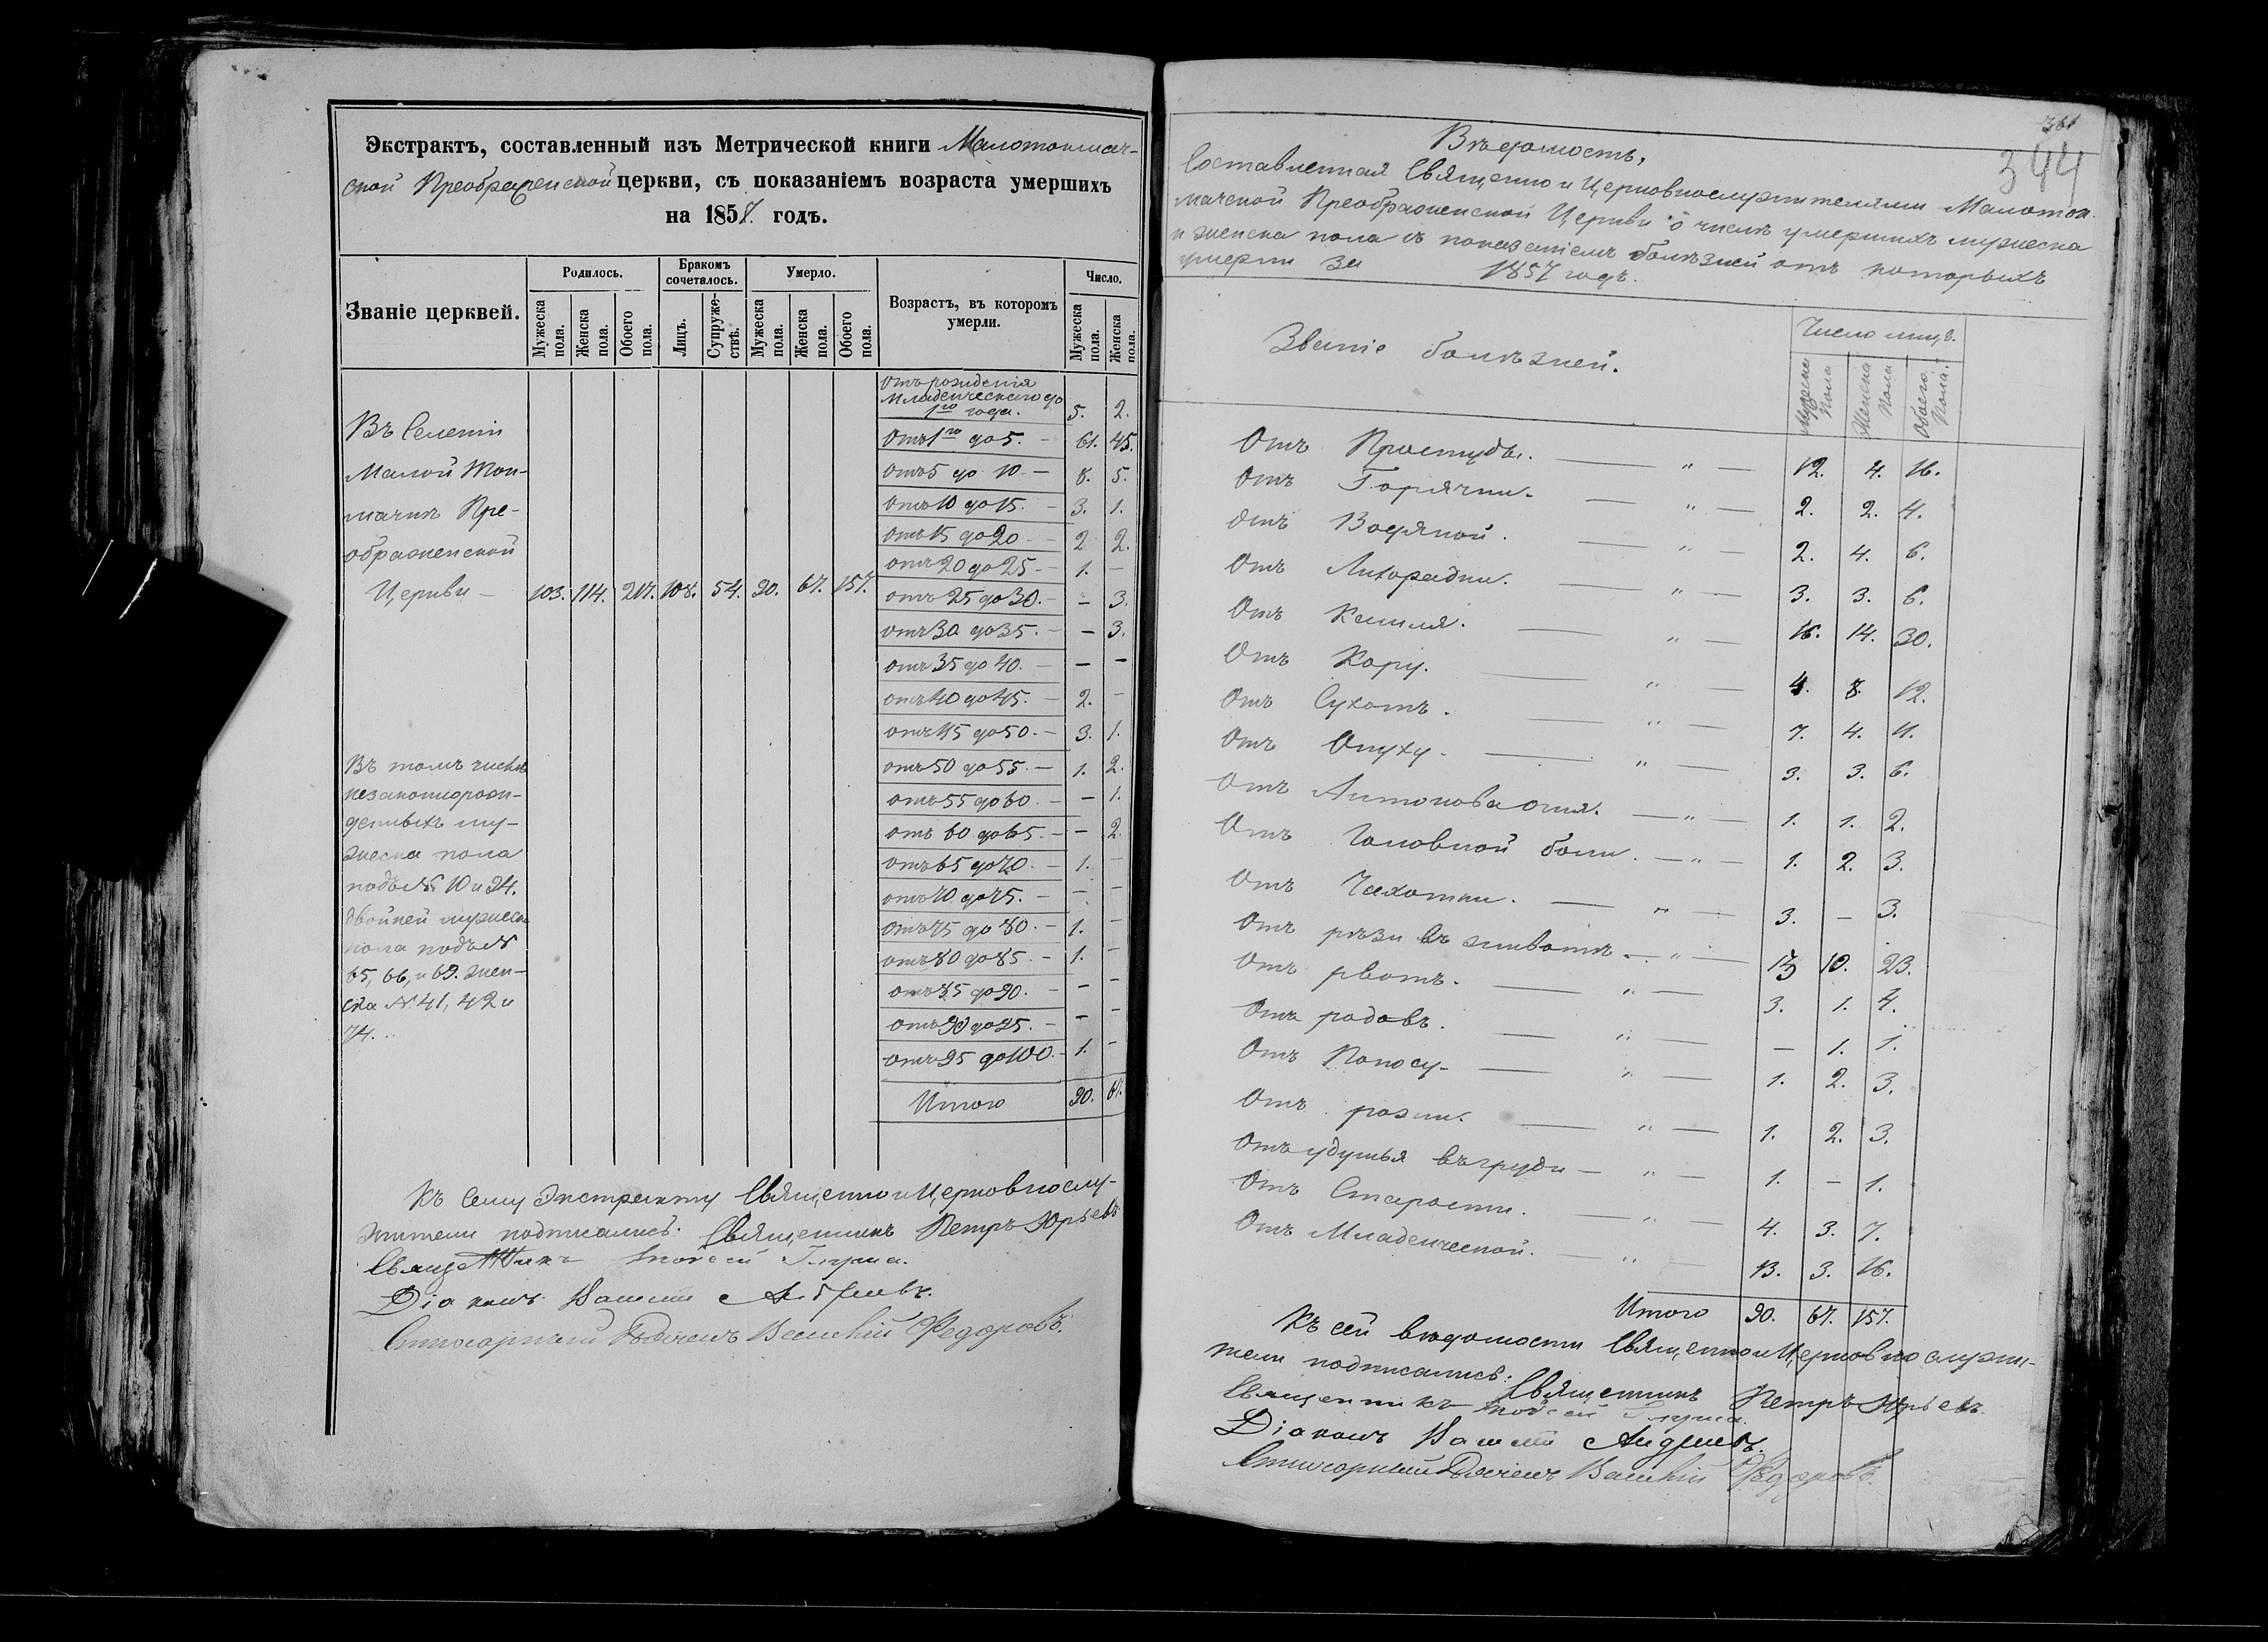 Экстрактъ, составленный изъ Метрической книги Малотокмач-
ской Преображенской церкви, съ показаніемъ возраста умершихъ
на 1857. годъ.
Званіе церквей.
Родилось.
Бракомъ сочеталось.
Умерло.
Возрастъ, въ которомъ умерли.
Число.
Мужеска пола. Женска пола. Обоего пола. Лицъ. Супружествъ. Мужеска пола. Женска пола. Обоего пола. Мужеска пола. Женска пола.
Въ Селеніи
Малой Ток-
мачкѣ Пре-
ображенской
Церкви – 103. 114. 217. 108. 54. 90. 67. 157.
Въ томъ числѣ
незаконнорож-
денныхъ му-
жеска пола
подъ № 10 и 94.
двойней мужеска
пола подъ №
65, 66, и 69. жен-
ска № 41, 42 и
74.
Отъ рожденія
младенческаго до
1го года. 5. 2.
Отъ 1го до 5. – 61. 45.
отъ 5 до 10 – 8. 5.
отъ 10 до 15. – 3. 1.
отъ 15 до 20 – 2 2.
отъ 20 до 25 – 1. –
отъ 25 до 30. – – 3.
отъ 30 до 35. – – 3.
отъ 35 до 40. – – –
отъ 40 до 45. – 2. –
отъ 45 до 50. – 3. 1.
отъ 50 до 55. – 1. 2.
отъ 55 до 60. – – 1.
отъ 60 до 65. – – 2.
отъ 65 до 70. – 1. –
отъ 70 до 75. – – –
отъ 75 до 80. – 1. –
отъ 80 до 85. – 1. –
отъ 85 до 90. – – –
отъ 90 до 95. – – –
отъ 95 до 100. – 1. –
Итого 90. 67.
Къ сему Экстракту Священно и Церковнослу-
жители подписались: Священникъ Петръ Юрьевъ
Священникъ
Діаконъ
Стихарный Дьячекъ Василій Федоровъ.
361
394
Вѣдомость,
Составленная Священно и Церковнослужителями Малоток-
мачской Преображенской Церкви о числѣ умершихъ мужеска
и женска пола съ показаніемъ болѣзней отъ которыхъ
умерли за 1857 годъ.
Званіе болѣзней.
Число лицъ.
Мужеска Пола Женска Пола Обоего Пола.
Отъ Простуды. — " — 12. 4. 16.
Отъ Горячки. — " — 2. 2. 4.
Отъ Водяной. — " — 2. 4. 6.
Отъ Лихорадки. — " — 3. 3. 6.
Отъ Кашля. — " — 16. 14. 30.
Отъ Кору. — " — 4. 8. 12.
Отъ Сухотъ. — " — 7. 4. 11.
Отъ Опуху. — " — 3. 3. 6.
Отъ Антонова огня. — " — 1. 1. 2.
Отъ Головной боли. — " — 1. 2. 3.
Отъ Чахотки. — " — 3. – 3.
Отъ рѣзи въ животѣ. — " — 13 10. 23.
Отъ рвотъ. — " — 3. 1. 4.
Отъ родовъ. — " — – 1. 1.
Отъ Поносу. — " — 1. 2. 3.
Отъ рожи. — " — 1. 2. 3.
Отъ удушья въ груди — " — 1. – 1.
Отъ Старости. — " — 4. 3. 7.
Отъ Младенческой. — " — 13. 3. 16.
Итого 90. 67. 157.
Къ сей вѣдомости Священно и Церковнослужи-
тели подписались: Священникъ Петръ Юрьевъ
Священникъ
Діаконъ
Стихарный Дьячекъ Василій Федоровъ.